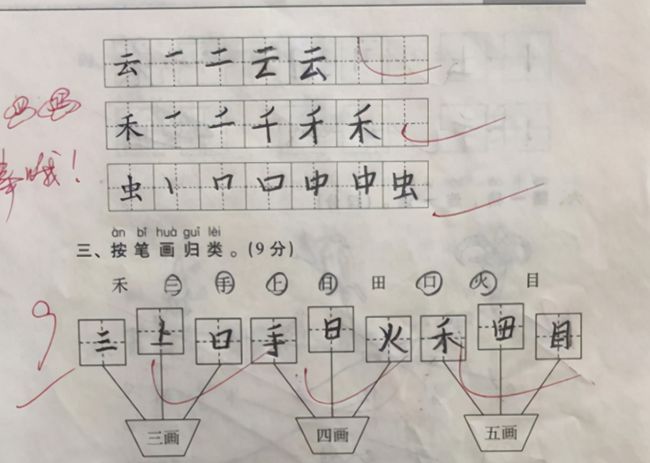 云 一 二 云 云
禾 一 二 千 チ 禾
虫 丨 冂 口 中 中 虫
àn bǐ huà guī lèi
三、按笔画归类。(9分)
禾 三 手 上 日 田 口 火 目
9
三 上 口 手 日 火 禾 田 目
三画 四画 五画